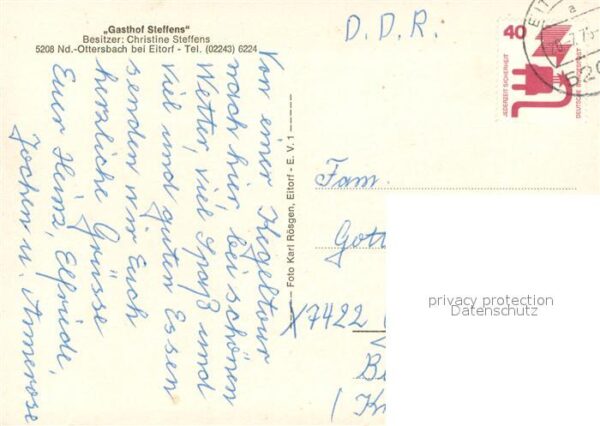 „Gasthof Steffens"
Besitzer: Christine Steffens
5208 Nd.-Ottersbach bei Eitorf - Tel. (02243) 6224
Von einer Kegeltour
noch hier, bei schönen
Wetter, viel Spaß und
viel und guten Essen
senden wir Euch
herzliche Grüsse
Eure Heinz, Elfriede,
Jochen u. Annerose
Foto Karl Rösgen, Eitorf - E. V. 1
D. D. R.
40
JEDERZEIT SICHERHEIT
DEUTSCHE BUNDESPOST
EIT
a
520
Fam.
Gott
X7422
privacy protection
Datenschutz